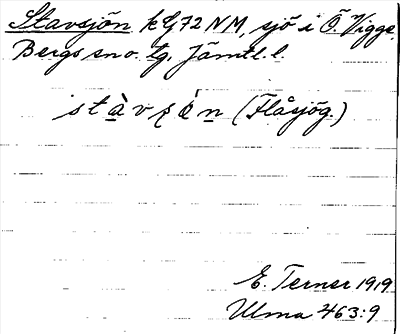 Stavsjön k G72 NM, sjö i Ö. Vigge,
Bergs sn o. tg, Jämtl. l.
(Flåsjög.)
E. Terner 1919
Ulma 463:9